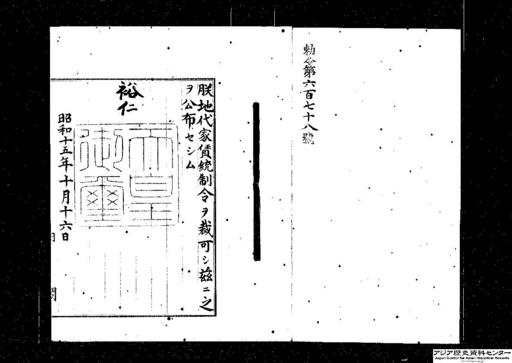 勅令第六百七十八號
朕地代家賃統制令ヲ裁可シ茲ニ之
ヲ公布セシム
裕仁
天皇
御璽
昭和十五年十月十六日
アジア歴史資料センター
Japan Center for Asian Historical Records